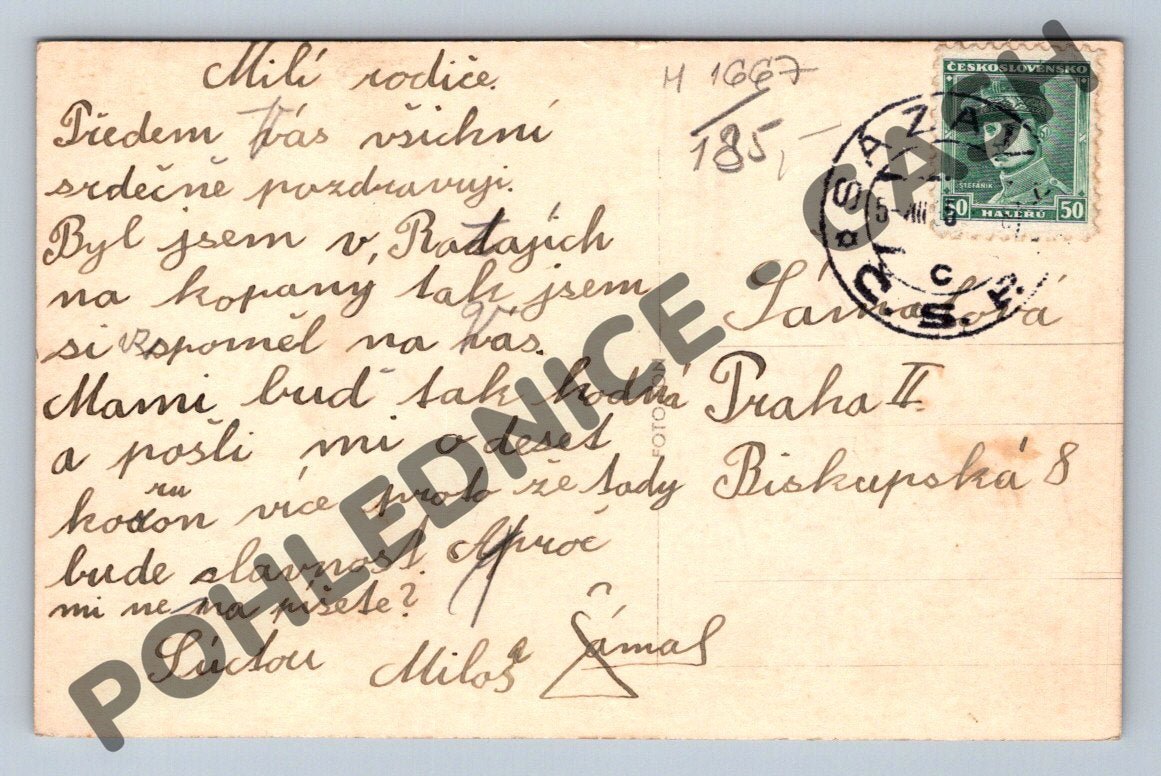 Milí rodiče.
Předem Vás všichni
srdečně pozdravuji.
Byl jsem v Ratajích
na kopany tak jsem
si vzpoměl na Vás.
Mami buď tak hodná
a pošli mi o deset
korun více proto že tady
bude slavnost. A proč
mi ne na píšete?
Súctou Miloš Šámal
H 1667
185,-
ČESKOSLOVENSKO
ŠTEFÁNIK
50 HALÉRŮ 50
SÁZAVA
5-VIII
C
Č.S.R.
Šámalová
Praha II.
Biskupská 8
FOTO
POHLEDNICE · CASH